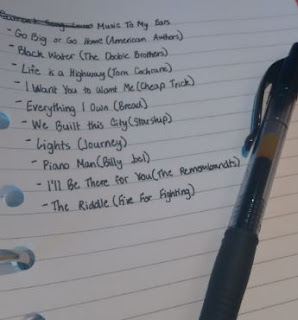 Music To My Ears
- Go Big or Go Home (American Authors)
- Black Water (The Doobie Brothers)
- Life is a Highway (Tom Cochrane)
- I Want You to Want Me (Cheap Trick)
- Everything I Own (Bread)
- We Built this City (Starship)
- Lights (Journey)
- Piano Man (Billy Joel)
- I'll Be There for You (The Remembrandts)
- The Riddle (Five For Fighting)